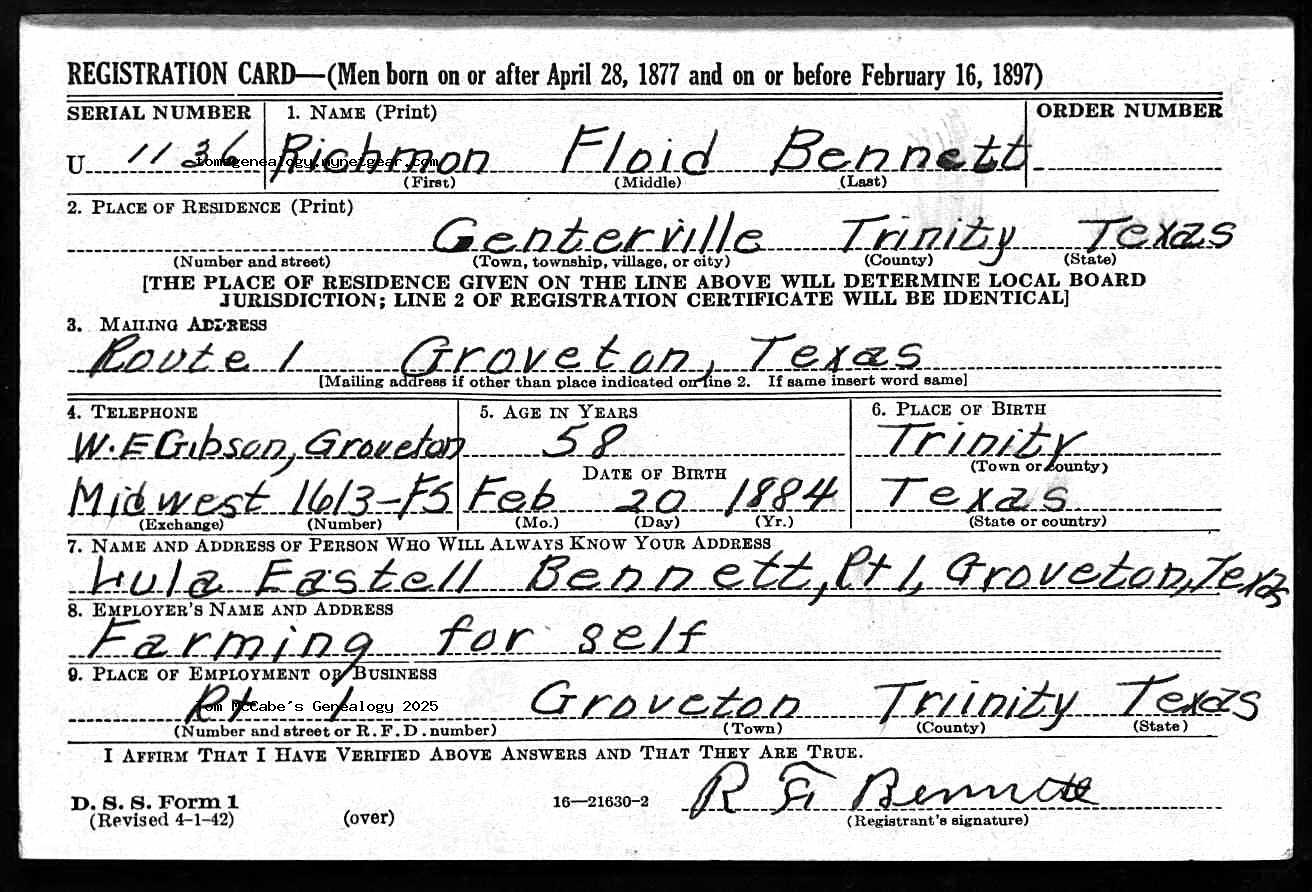 REGISTRATION CARD—(Men born on or after April 28, 1877 and on or before February 16, 1897)
SERIAL NUMBER 1. NAME (Print) ORDER NUMBER
U 1136 Richmon Floid Bennett
tomsgenealogy.mynetgear.com
(First) (Middle) (Last)
2. PLACE OF RESIDENCE (Print)
Centerville Trinity Texas
(Number and street) (Town, township, village, or city) (County) (State)
[THE PLACE OF RESIDENCE GIVEN ON THE LINE ABOVE WILL DETERMINE LOCAL BOARD
JURISDICTION; LINE 2 OF REGISTRATION CERTIFICATE WILL BE IDENTICAL]
3. MAILING ADDRESS
Route 1 Groveton, Texas
[Mailing address if other than place indicated on line 2. If same insert word same]
4. TELEPHONE 5. AGE IN YEARS 6. PLACE OF BIRTH
W.E Gibson, Groveton 58 Trinity
DATE OF BIRTH (Town or county)
Midwest 1613-F5 Feb 20 1884 Texas
(Exchange) (Number) (Mo.) (Day) (Yr.) (State or country)
7. NAME AND ADDRESS OF PERSON WHO WILL ALWAYS KNOW YOUR ADDRESS
Lula Eastell Bennett, Rt 1, Groveton, Texas
8. EMPLOYER'S NAME AND ADDRESS
Farming for self
9. PLACE OF EMPLOYMENT OR BUSINESS
Rt 1 Groveton Triinity Texas
Tom McCabe's Genealogy 2025
(Number and street or R. F. D. number) (Town) (County) (State)
I AFFIRM THAT I HAVE VERIFIED ABOVE ANSWERS AND THAT THEY ARE TRUE.
D. S. S. Form 1 16—21630-2 R F Bennett
(Revised 4-1-42) (over) (Registrant's signature)